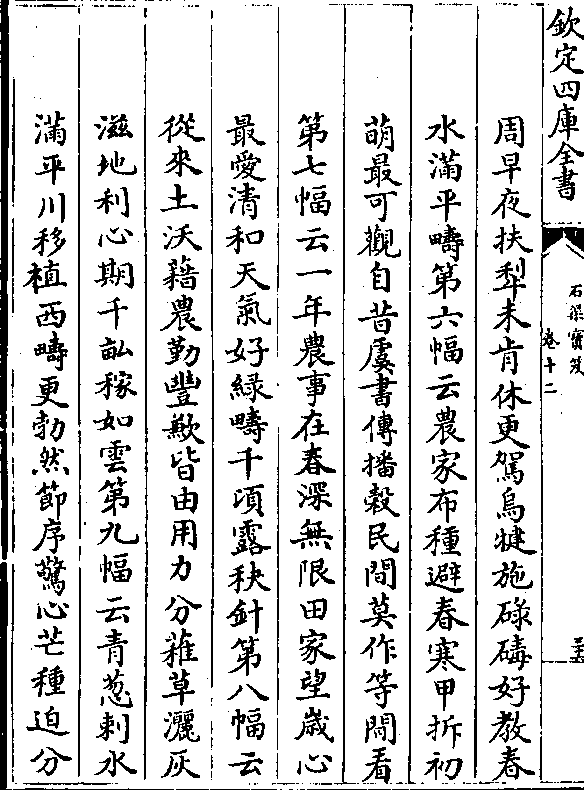 欽定四庫全書
石渠寳笈
卷十二
三五
周早夜扶犂未肯休更駕烏犍施碌碡好教春
水滿平疇第六幅云農家布種避春寒甲拆初
萌最可觀自昔虞書傳播穀民間莫作等閒看
第七幅云一年農事在春深無限田家望歳心
最愛清和天氣好緑疇千頃露秧針第八幅云
從來土沃藉農勤豐歉皆由用力分薙草灑灰
滋地利心期千畝稼如雲第九幅云青葱刺水
滿平川移植西疇更勃然節序驚心芒種迫分